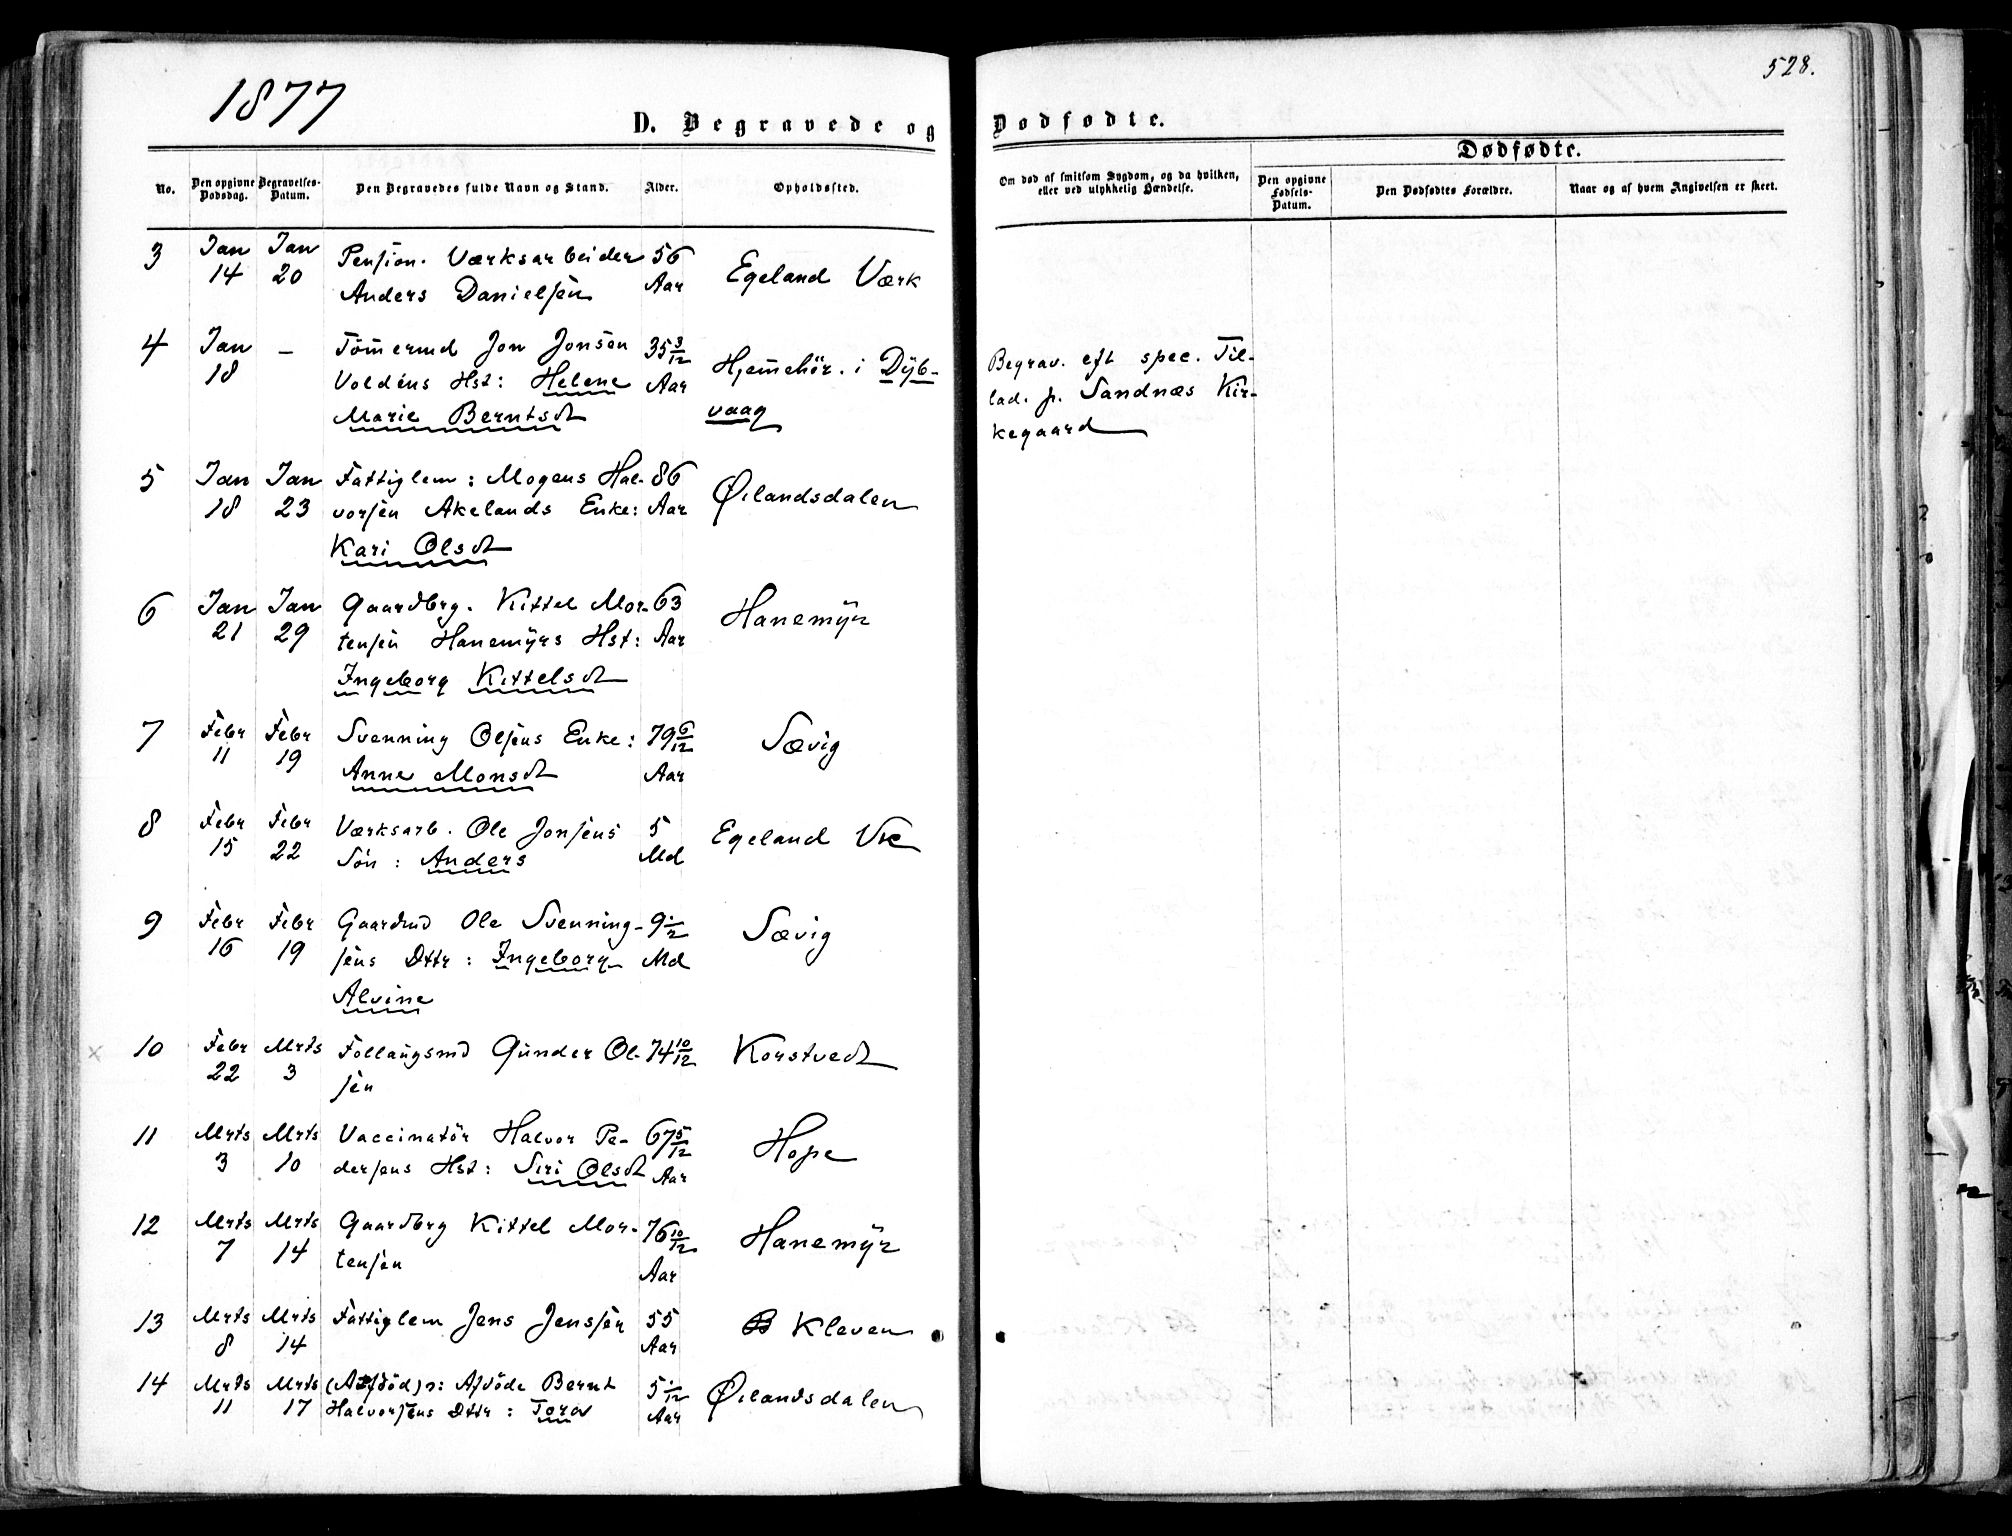 1877
528.
D. Begravede og Dødfødte.
Dødfødte.
No. Den opgivne Dødsdag. Begravelses-Datum. Den Begravedes fulde Navn og Stand. Alder. Opholdssted. Om død af smitsom Sygdom, og da hvilken, eller ved ulykkelig Hændelse. Den opgivne Fødsels-Datum. Den Dødfødtes Forældre. Naar og af hvem Angivelsen er skeet.
3 Jan Jan Pension. Værksarbeider 56 Egeland Værk
14 20 Anders Danielsen Aar
4 Jan – Tömermd Jon Jonsen 35 3/12 Hjemehör. i Dÿb- Begrav. eft spec. Til-
18 Voldens Hst: Helene Aar vaag lad. p. Sandnæs Kir-
Marie Berntsdt kegaard
5 Jan Jan Fattiglem: Mogens Hal- 86 Øilandsdalen
18 23 vorsen Akelands Enke: Aar
Kari Olsdt
6 Jan Jan Gaardbrg. Kittel Mor- 63 Hanemÿr
21 29 tensen Hanemÿrs Hst: Aar
Ingeborg Kittelsdt
7 Febr Febr Svenning Olsens Enke: 79 6/12 Sævig
11 19 Anne Monsdt Aar
8 Febr Febr Værksarb. Ole Jonsens 5 Egeland Vk
15 22 Sön: Anders Md
9 Febr Febr Gaardmd Ole Svenning- 9 1/2 Sævig
16 19 sens Dttr: Ingeborg Md
Alvine
10 Febr Mrts Follaugsmd Gunder Ol- 74 10/12 Korstvedt
22 3 sen
11 Mrts Mrts Vaccinatör Halvor Pe- 67 5/12 Hope
3 10 dersens Hst: Siri Olsdt Aar
12 Mrts Mrts Gaardbrg Kittel Mor- 76 10/12 Hanemÿr
7 14 tensen Aar
13 Mrts Mrts Fattiglem Jens Jenssen 55 Kleven
8 14 Aar
14 Mrts Mrts Afdöde Bernt 5 1/12 Øilandsdalen
11 17 Halvorsens Dttr: Tora Aar